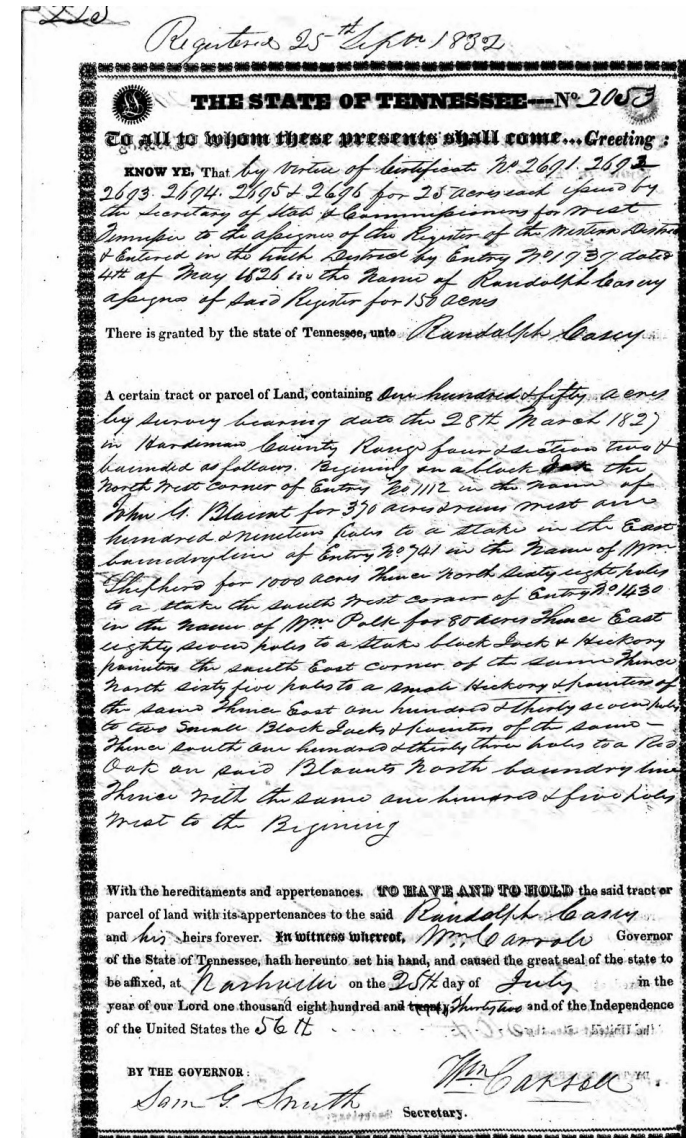 Registered 25th Septr 1832
THE STATE OF TENNESSEE----No. 2053
To all to whom these presents shall come... Greeting:
KNOW YE, That by virtue of Certificate No 2691. 2692
2693. 2694. 2695 & 2696 for 25 acres each issued by
the Secretary of State & Commissioners for West
Tennessee to the assignee of the Register of the Western District
& Entered in the tenth District by Entry No 1737 dated
4th of May 1826 in the Name of Randolph Casey
assignee of said Register for 150 acres
There is granted by the state of Tennessee, unto Randolph Casey
A certain tract or parcel of Land, containing One hundred & fifty acres
by survey bearing date the 28th March 1827
in Hardiman County Range four & section two &
bounded as follows. Begining on a black Jack the
North West corner of Entry No 1112 in the name of
John G. Blount for 370 acres & runs West one
hundred & nineteen poles to a stake in the East
boundry line of Entry No 741 in the Name of Wm
Shepherd for 1000 acres Thence North sixty eight poles
to a stake the south West corner of Entry No 1430
in the name of Wm Polk for 80 acres Thence East
eighty seven poles to a stake black Jack & Hickory
pointers the south East corner of the same Thence
North sixty five poles to a small Hickory & pointers of
the same Thence East one hundred & thirty seven poles
to two Small Black Jacks & pointers of the same -
Thence south one hundred & thirty three poles to a Red
Oak on said Blounts North boundry line
Thence With the same one hundred & five poles
West to the Begining
With the hereditaments and appertenances. TO HAVE AND TO HOLD the said tract or
parcel of land with its appertenances to the said Randolph Casey
and his heirs forever. In witness whereof, Wm Carroll Governor
of the State of Tennessee, hath hereunto set his hand, and caused the great seal of the state to
be affixed, at Nashville on the 25th day of July in the
year of our Lord one thousand eight hundred and twenty Thirty two and of the Independence
of the United States the 56th
BY THE GOVERNOR:
Wm Carroll
Sam G. Smith Secretary.